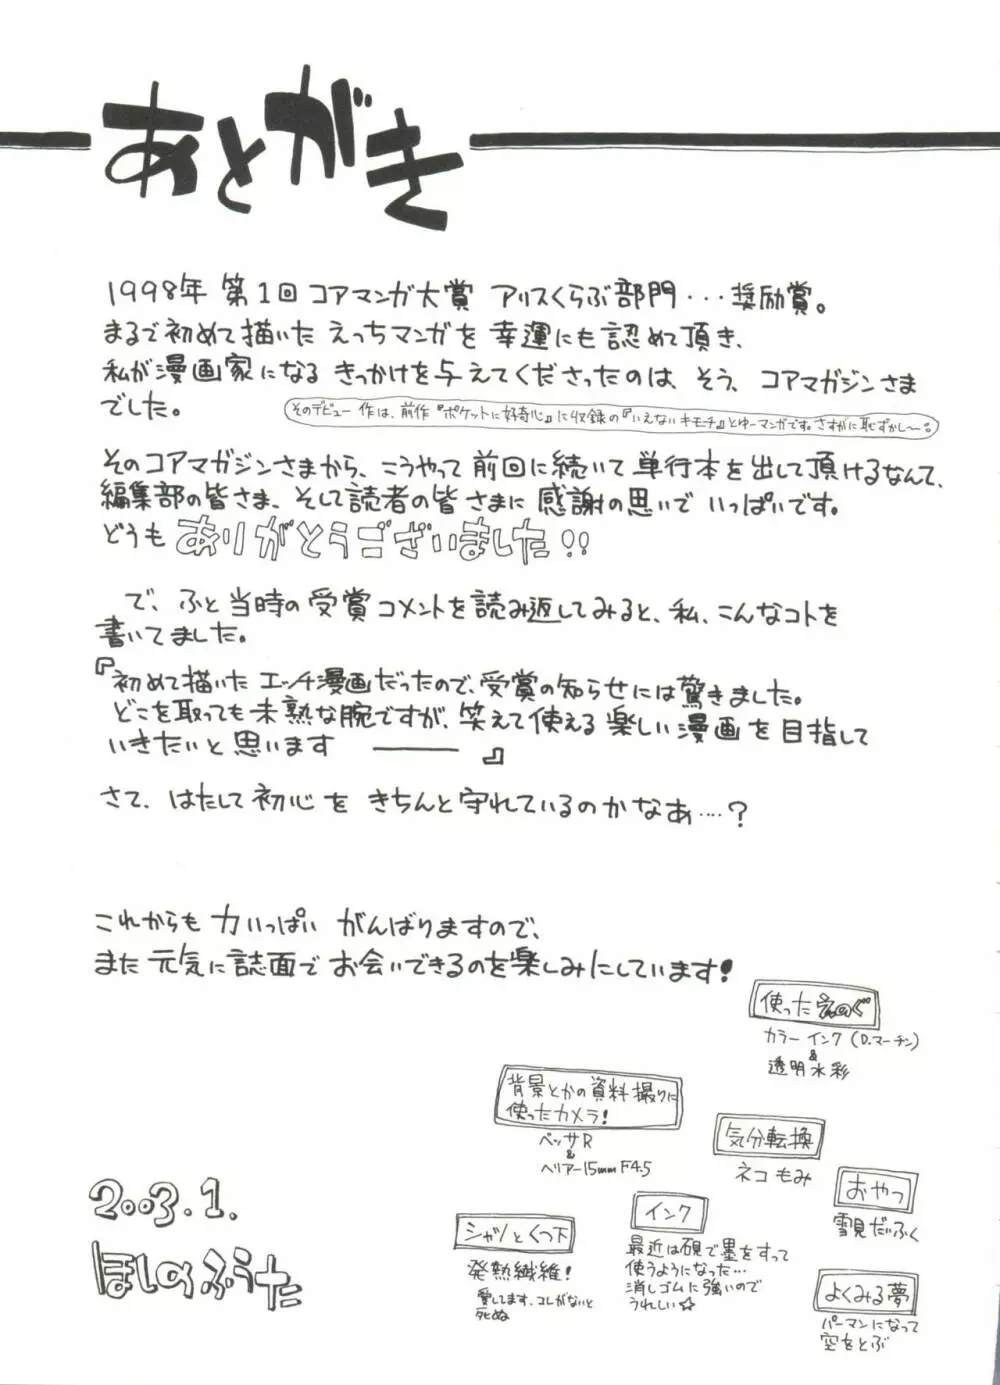 あとがき
1998年 第1回 コアマンガ大賞 アリスくらぶ部門・・・奨励賞。
まるで初めて描いた えっちマンガを 幸運にも認めて頂き、
私が漫画家になる きっかけを与えてくださったのは、そう、コアマガジンさま
でした。
そのデビュー作は、前作『ポケットに好奇心』に収録の『いえないキモチ』とゆーマンガです。さすがに恥ずかし〜。
そのコアマガジンさまから、こうやって 前回に続いて 単行本を出して頂けるなんて、
編集部の皆さま、そして読者の皆さまに 感謝の思いで いっぱいです。
どうも ありがとうございました!!
で、ふと当時の受賞コメントを読み返してみると、私、こんなコトを
書いてました。
『初めて描いた エッチ漫画だったので、受賞の知らせには驚きました。
どこを取っても未熟な腕ですが、笑えて使える 楽しい漫画を目指して
いきたいと思います ―――』
さて、はたして初心を きちんと守れているのかなぁ‥‥?
これからも 力いっぱい がんばりますので、
また元気に誌面で お会いできるのを楽しみにしています!
使ったえのぐ
カラーインク(D.マーチン)
&
透明水彩
背景とかの資料撮りに
使ったカメラ!
ベッサR
&
ヘリアー15mm F4.5
気分転換
ネコもみ
おやつ
雪見だいふく
2003.1.
ほしのふうた
シャツとくつ下
発熱繊維!
愛してます、コレがないと
死ぬ
インク
最近は硯で墨をすって
使うようになった…
消しゴムに強いので
うれしい☆
よくみる夢
パーマンになって
空をとぶ